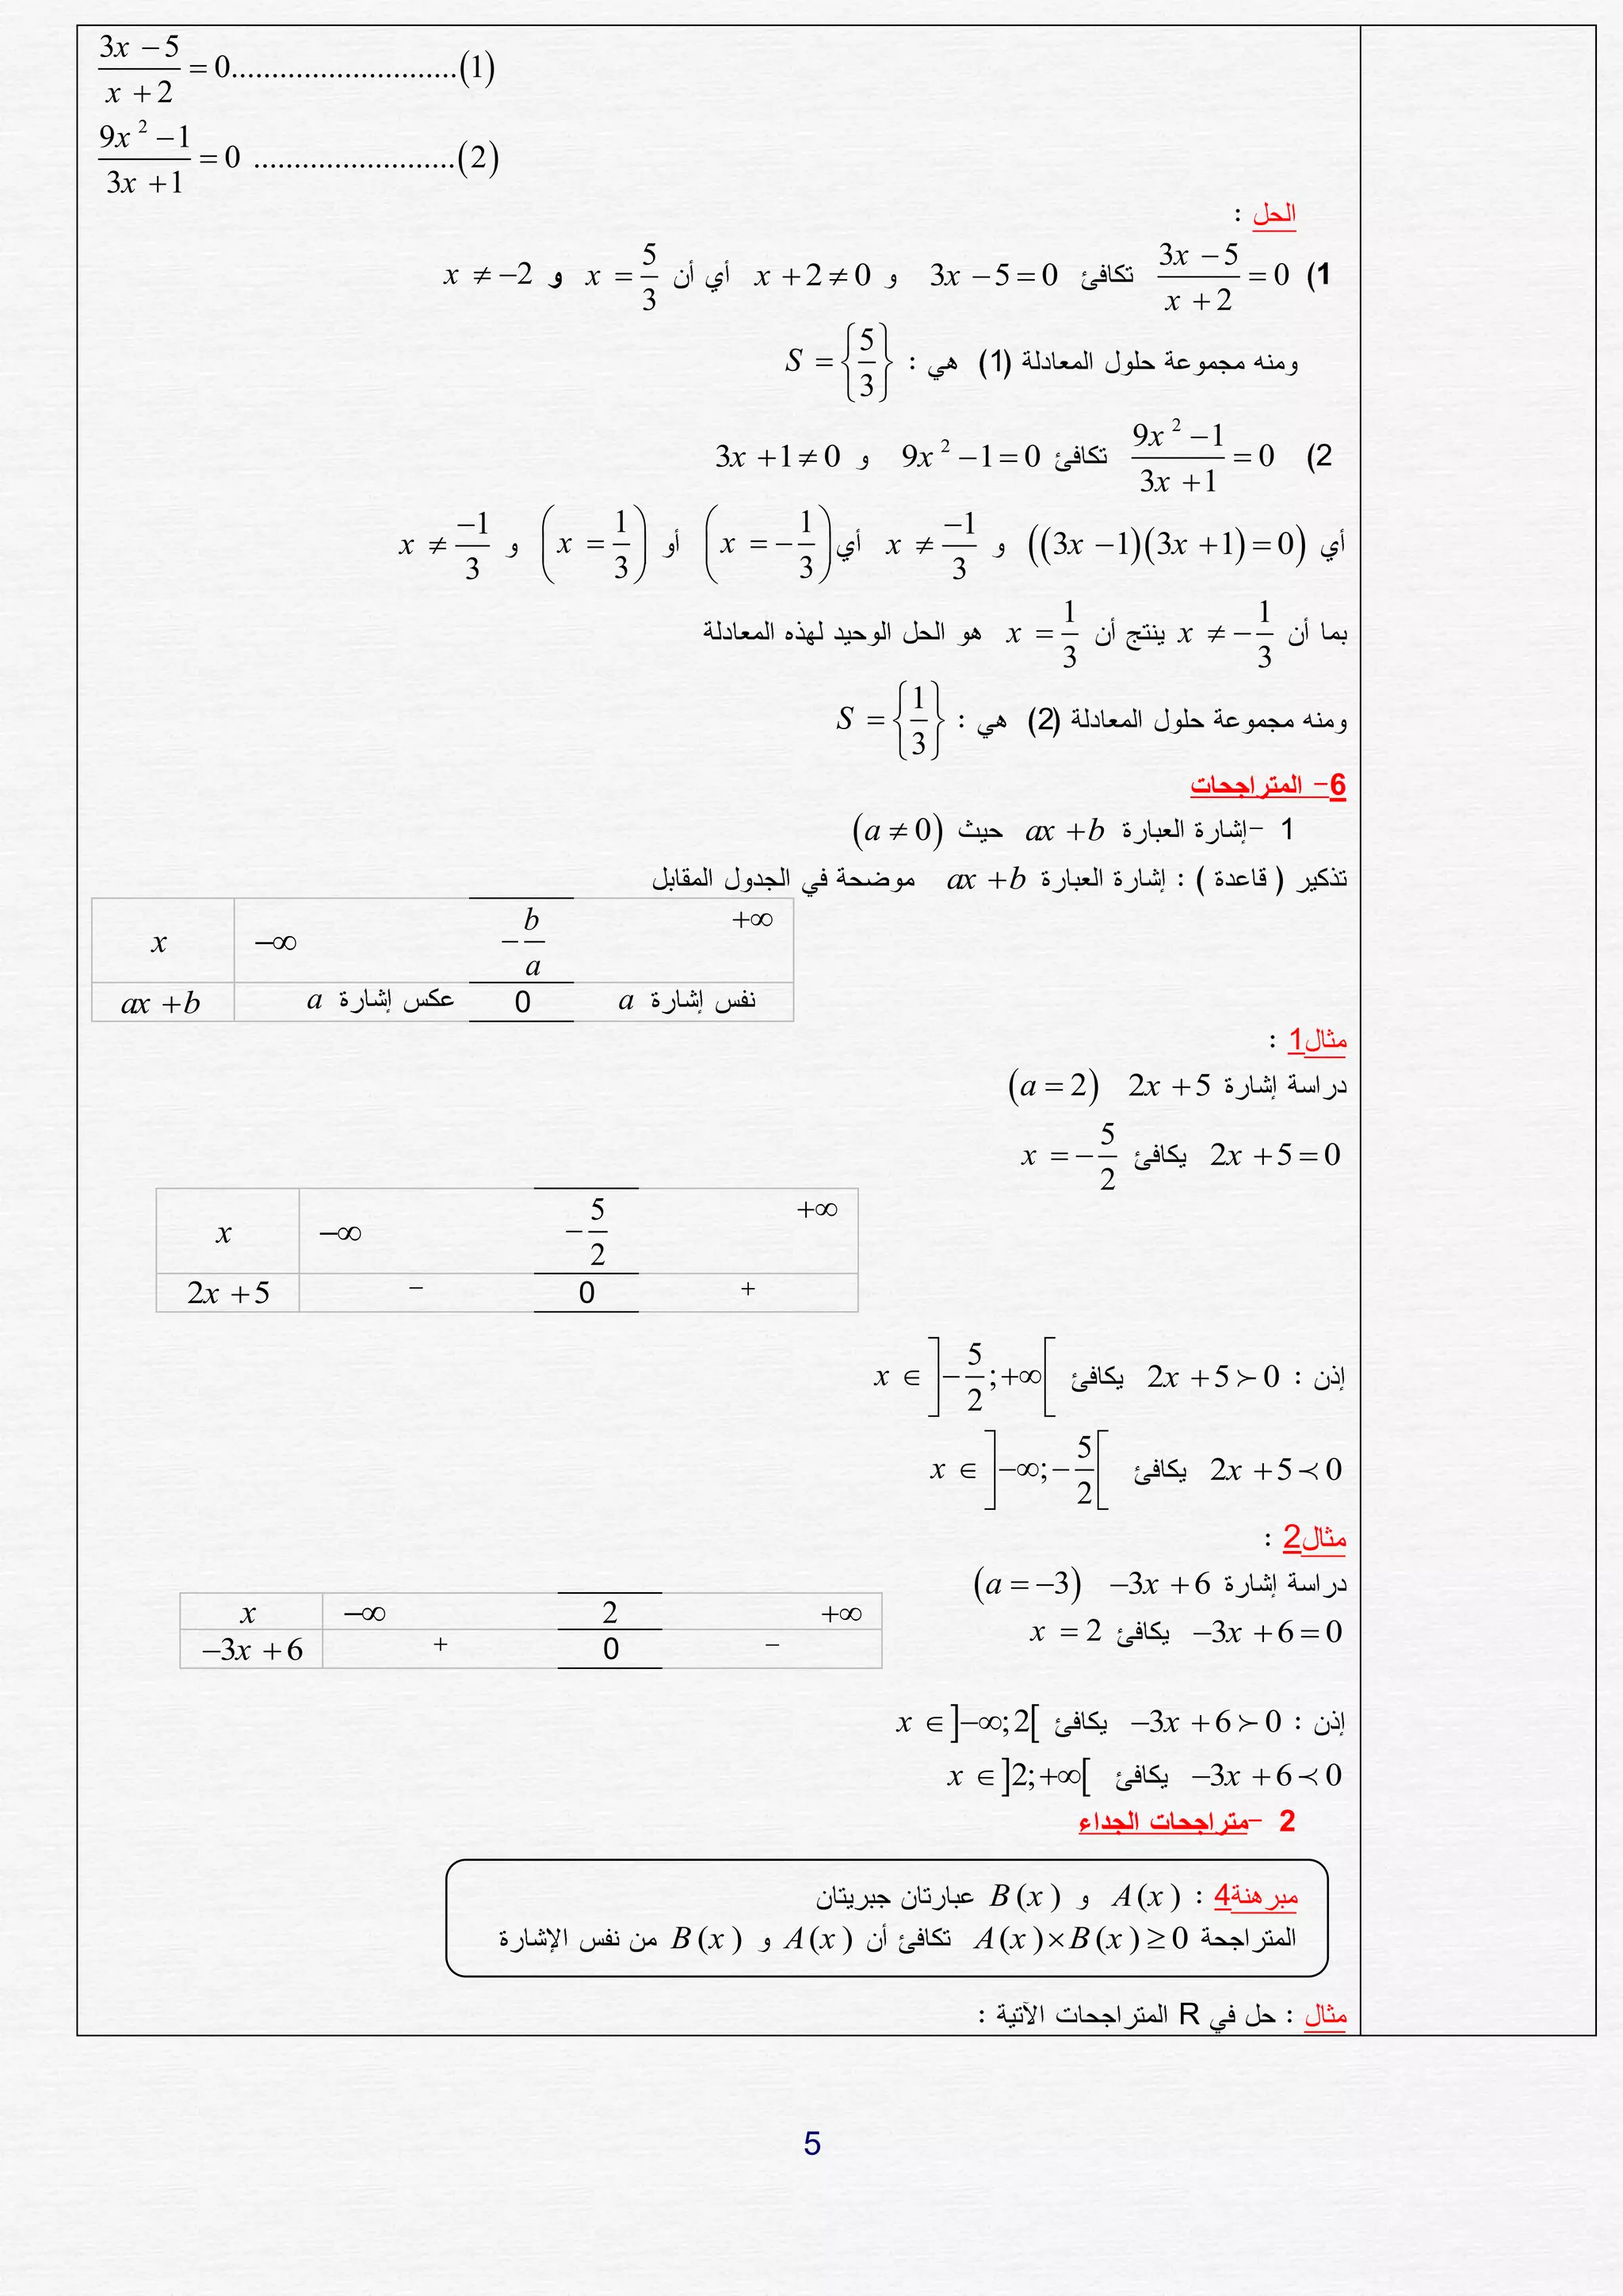 (3x − 5)/(x + 2) = 0............................(1)
(9x² − 1)/(3x + 1) = 0 .........................(2)
الحل :
1) (3x − 5)/(x + 2) = 0 تكافئ 3x − 5 = 0 و x + 2 ≠ 0 أي أن x = 5/3 و x ≠ −2
ومنه مجموعة حلول المعادلة (1) هي : S = {5/3}
2) (9x² − 1)/(3x + 1) = 0 تكافئ 9x² − 1 = 0 و 3x + 1 ≠ 0
أي ((3x − 1)(3x + 1) = 0) و x ≠ −1/3 أي (x = −1/3) أو (x = 1/3) و x ≠ −1/3
بما أن x ≠ −1/3 ينتج أن x = 1/3 هو الحل الوحيد لهذه المعادلة
ومنه مجموعة حلول المعادلة (2) هي : S = {1/3}
6- المتراجحات
1 -إشارة العبارة ax + b حيث (a ≠ 0)
تذكير ( قاعدة ) : إشارة العبارة ax + b موضحة في الجدول المقابل
x −∞ −b/a +∞
ax + b عكس إشارة a 0 نفس إشارة a
مثال1 :
دراسة إشارة 2x + 5 (a = 2)
2x + 5 = 0 يكافئ x = −5/2
x −∞ −5/2 +∞
2x + 5 − 0 +
إذن : 2x + 5 ≻ 0 يكافئ x ∈ ]−5/2;+∞[
2x + 5 ≺ 0 يكافئ x ∈ ]−∞;−5/2[
مثال2 :
دراسة إشارة −3x + 6 (a = −3)
−3x + 6 = 0 يكافئ x = 2
x −∞ 2 +∞
−3x + 6 + 0 −
إذن : −3x + 6 ≻ 0 يكافئ x ∈ ]−∞;2[
−3x + 6 ≺ 0 يكافئ x ∈ ]2;+∞[
2 -متراجحات الجداء
مبرهنة4 : A(x) و B(x) عبارتان جبريتان
المتراجحة A(x)×B(x) ≥ 0 تكافئ أن A(x) و B(x) من نفس الإشارة
مثال : حل في R المتراجحات الآتية :
5